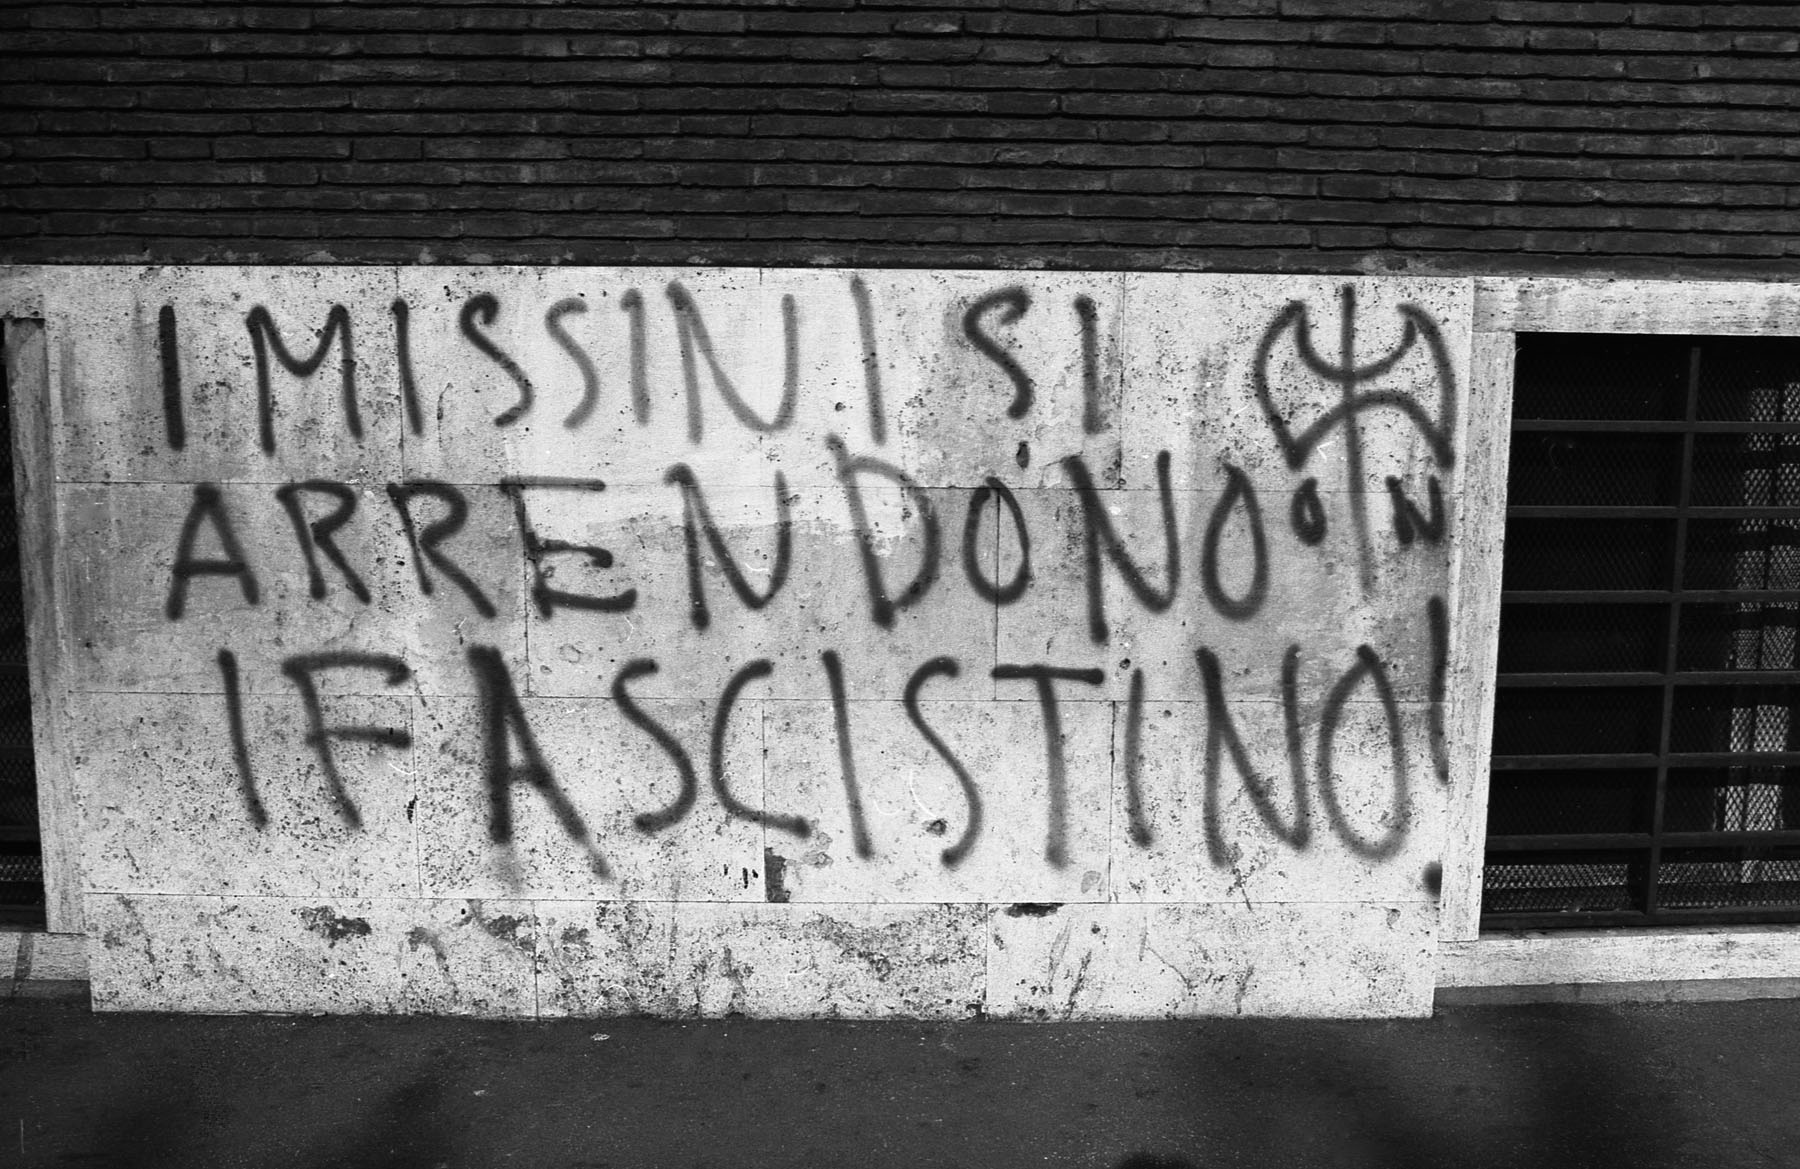 I MISSINI SI
ARRENDONO
O N
I FASCISTI NO!